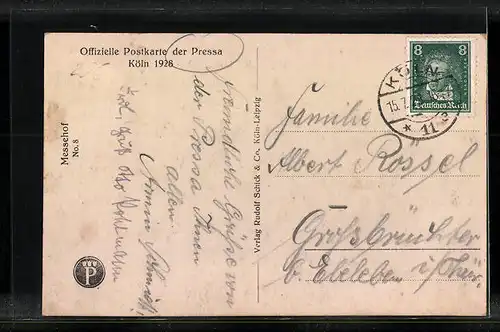 Offizielle Postkarte der Pressa
Köln 1928
Messehof
No. 8
Freundliche Grüße von
der Pressa Ihnen
allen
Armin Schmidt
P
Verlag Rudolf Schick & Co. Köln-Leipzig
8 8
Deutsches Reich
KÖLN
15.7.
* 11
Familie
Albert Rossel
Großbrüchter
b. Ebeleben i/Thür.